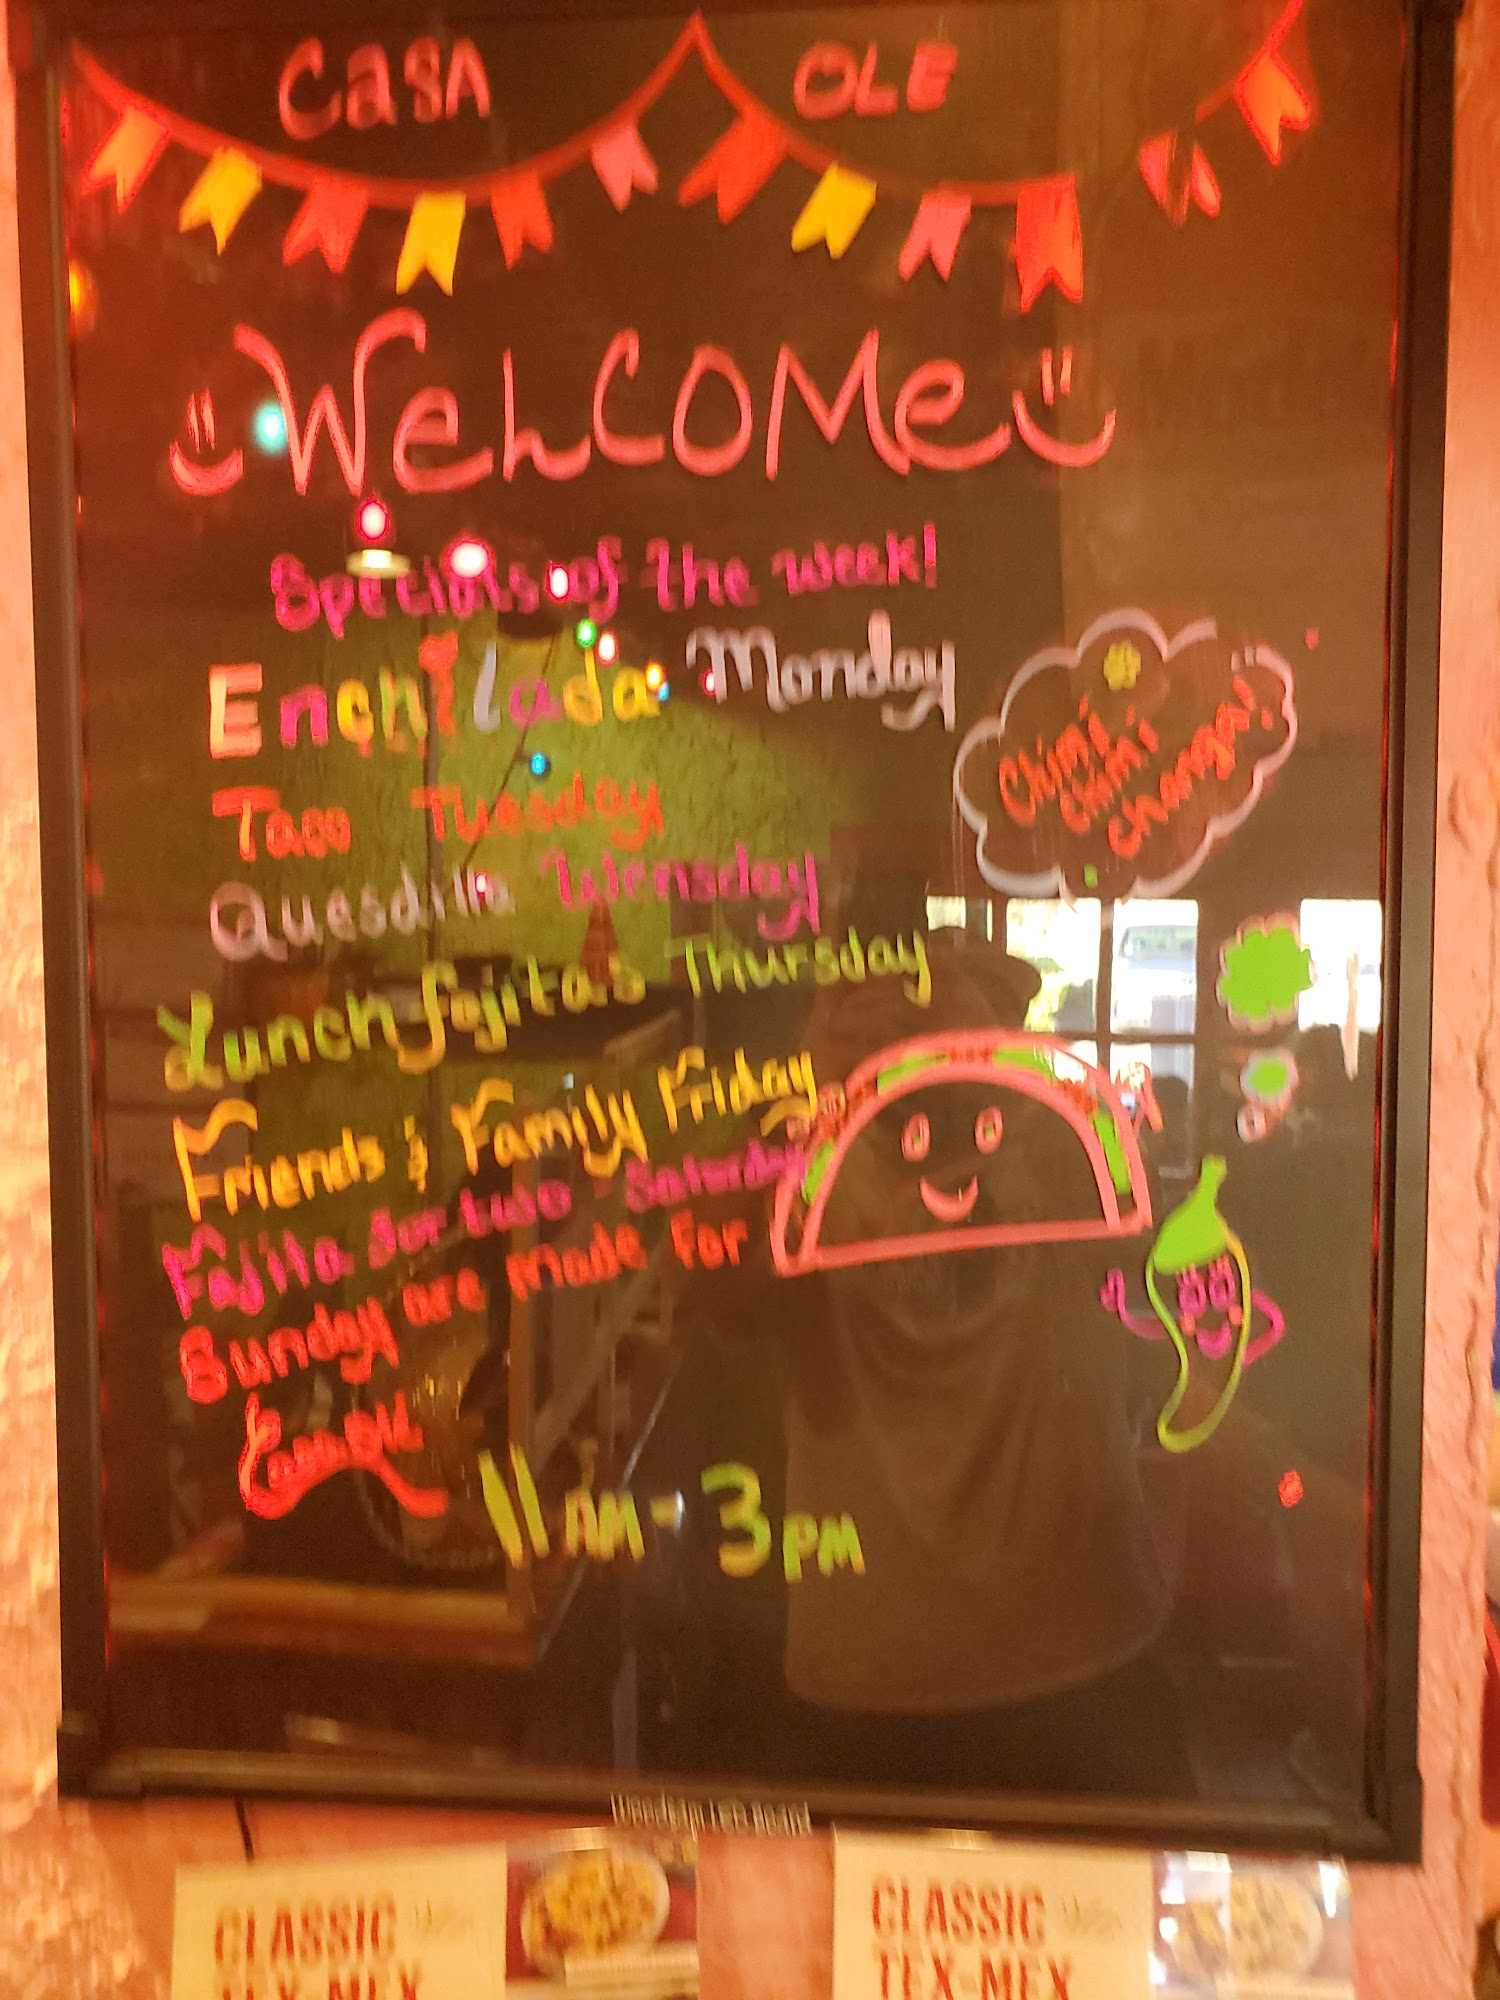 Casa OLE
Welcome
Specials of the week!
Enchilada Monday
Taco Tuesday
Quesdilla Wensday
Lunch fajitas Thursday
Friends & Family Friday
Fajita for two - Saturday
Sunday are made for
11 AM - 3 PM
Chimi
Chimi
changa!
CLASSIC
TEX-MEX
CLASSIC
TEX-MEX